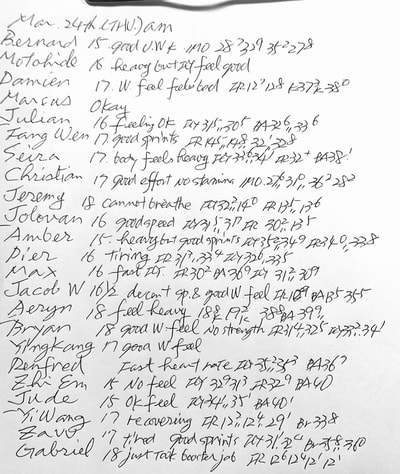 Mar. 24th (THU.) am
Bernard 15 good U.W k IMO 28² 32⁹ 35² 27⁸
Motohide 16 heavy but fly feel good
Damien 17. W feel feels bad FR 12⁷ 12⁸ K 37² 38⁰
Marcus Okay
Julian 16 feeling OK FLY 31⁵ 30⁵ BA 32⁶ 33⁶
Fang Wen 17 good sprints FR 14⁵ 14⁸ 32 32⁸
Seira 17. body feels heavy FLY 33² 34¹ FR 32⁺ BA 38¹
Christian 17 good effort no stamina IMO 27⁶ 31⁰ 36² 28²
Jeremy 18 cannot breathe 13² 14⁰ FR 13⁵ 13⁶
Jolovan 16 good speed FLY 31⁵ 31⁷ FR 30² 13⁵
Amber 15. heavy but good sprints FLY 35⁶ 34⁹ FR 34⁰ 33⁸
Pier 16 tiring FR 31⁷ 33⁴ FLY 32⁶ 33⁵
Max 16 fast FLY FR 30² BA 36⁹ FLY 31² 30⁹
Jacob W 16½ decent sp. & good W feel FR 10⁹ BA 13⁵ 35⁵
Aeryn 18 feel heavy 18² 19² 38⁸ BA 39⁹
Bryan 18 good W feel no strength FR 31⁴ 32⁵ FLY 33² 34¹
YingKang 17 good W feel
Renfred Fast heart rate FLY 35² 35³ BA 36⁷
Zhi Em 15 No feel FLY 32⁹ 31³ FR 32⁹ BA 40
Jude 15 OK feel FLY 34¹ 35¹ BA 40¹
Yi Wang 17 recovering FR 13² 12⁴ 29¹ Br 33⁸
17 tired good sprints FLY 31² 32⁴ Br 35⁸ 36⁰
Gabriel 18 just took booster jab FR 12⁶ 12⁴ 12¹ 12¹